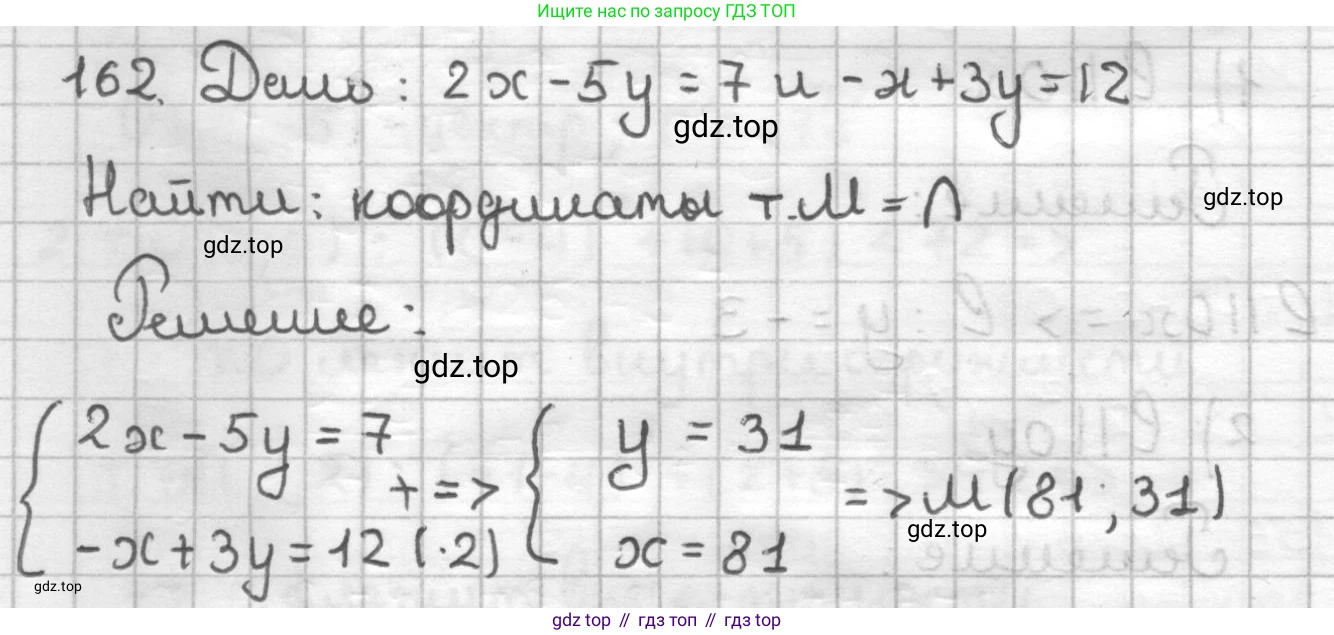 Ищите нас по запросу ГДЗ ТОП
162. Дано: 2x - 5y = 7 и -x + 3y = 12
gdz.top
Найти: координаты т. М = ∩
gdz.top
gdz.top
Решение:
gdz.top
{ 2x - 5y = 7
-x + 3y = 12 (·2)
+ =>
{ y = 31
x = 81
=> М(81; 31)
gdz.top
gdz.top
gdz top // гдз топ // гдз top